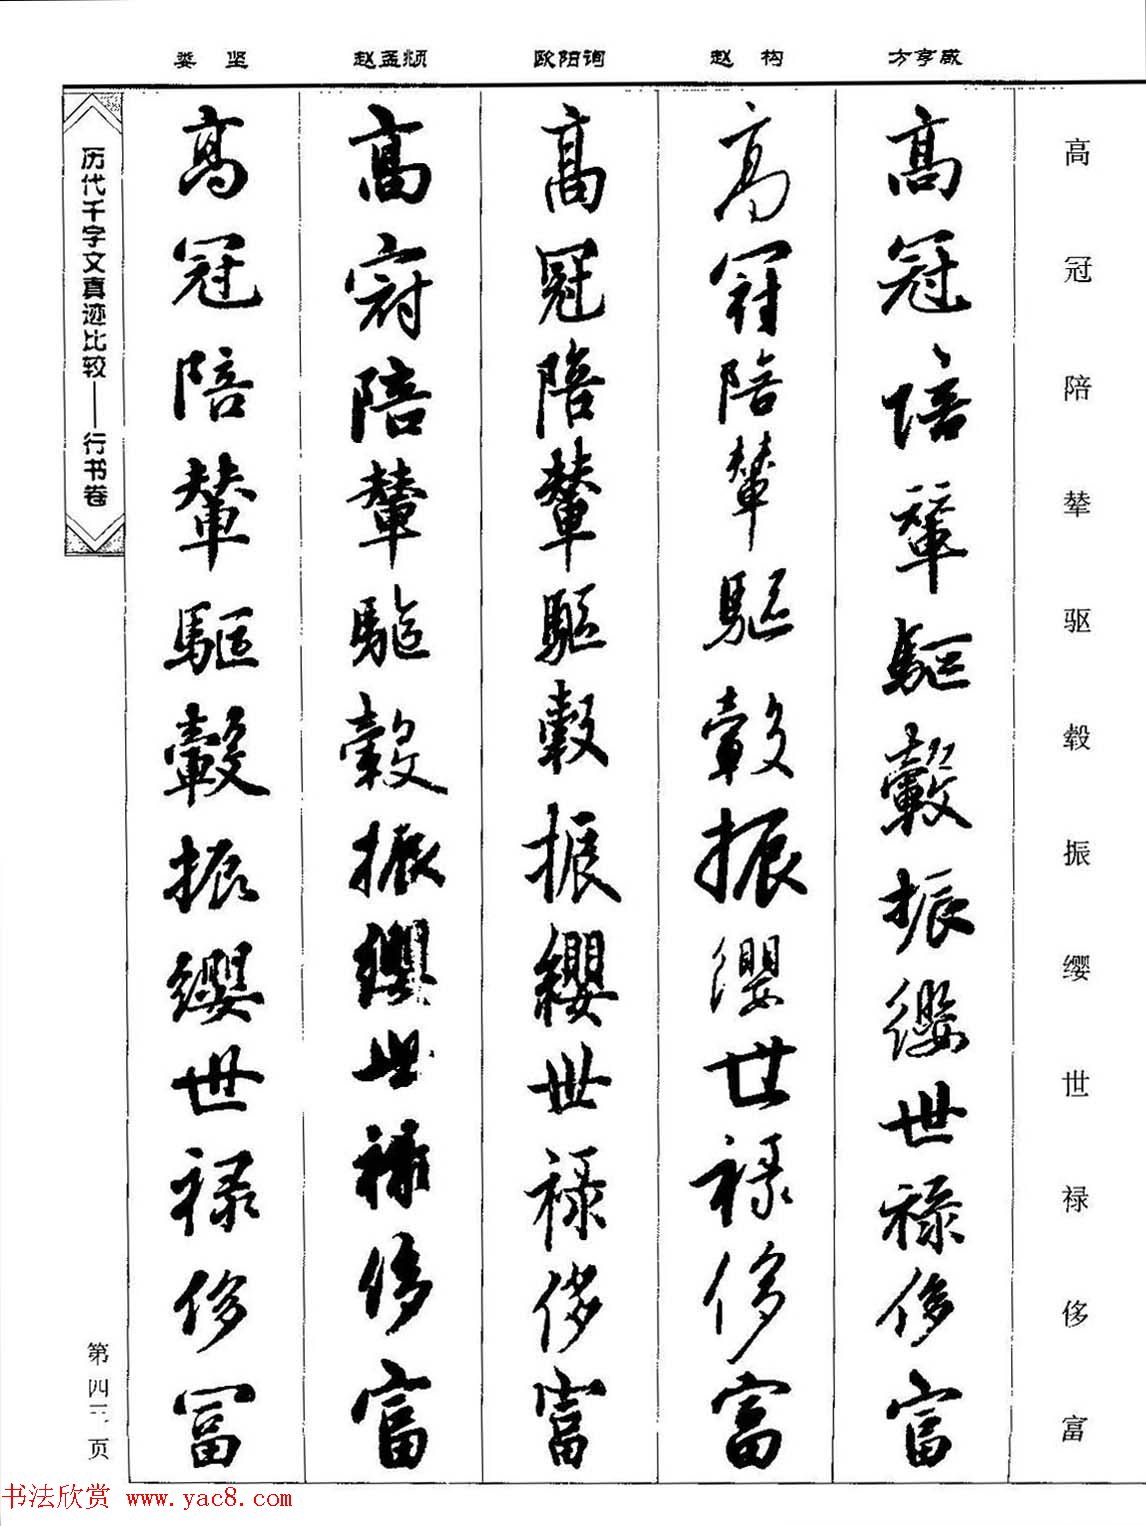 娄坚
赵孟頫
欧阳询
赵构
方亨咸
高冠陪辇驱毂振缨世禄侈富
高冠陪輦驅轂振纓世祿侈富
高冠陪輦驅轂振纓世祿侈富
高冠陪輦驅轂振纓世祿侈富
高冠陪輦驅轂振纓世祿侈富
高冠陪輦驅轂振纓世祿侈富
历代千字文真迹比较——行书卷
第四三页
书法欣赏 www.yac8.com